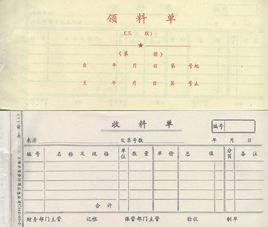 领料单
(三联)
(第 册)
自 年 月 日 第 号起
至 年 月 日 第 号止
收料单
编号
来源 发票号数 年 月 日
编号 名称及规格 单位 数量 单价 总值 分页 备注
合计
财务部门主管 记帐 保管部门主管 验收 制单